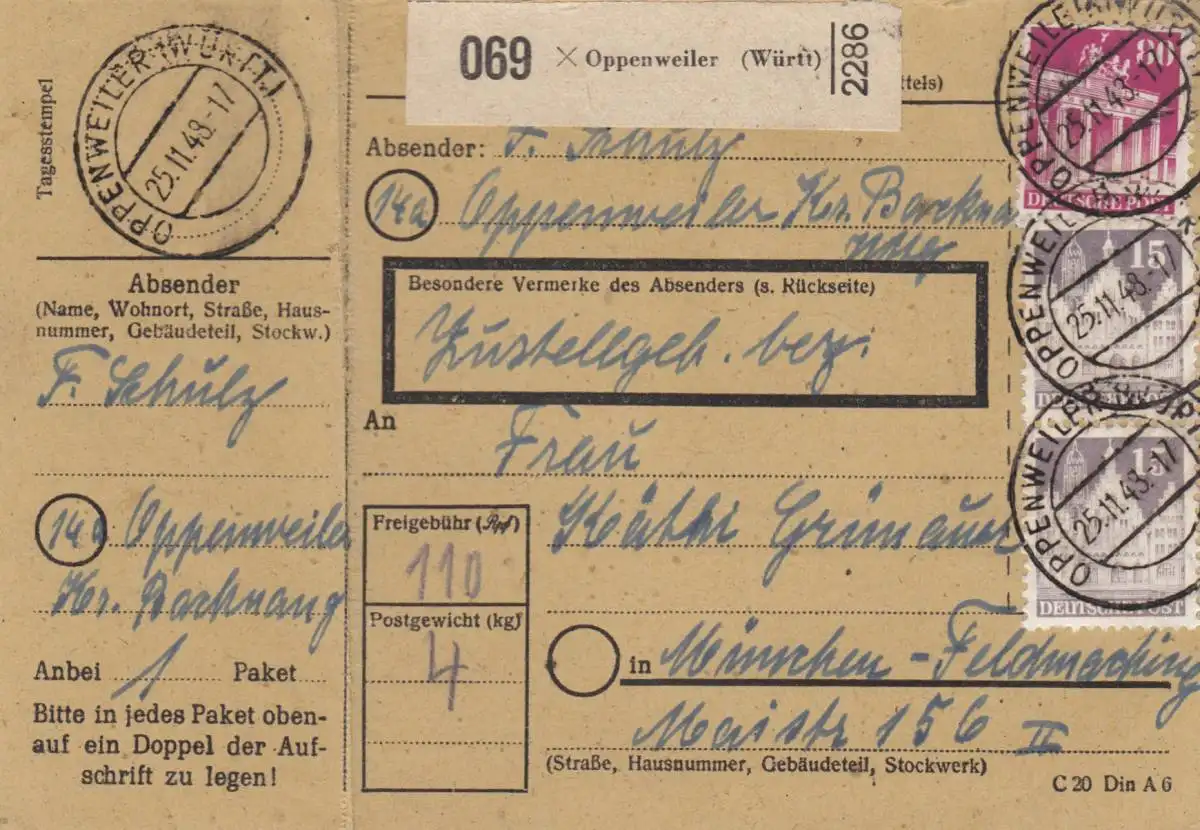 Tagesstempel
OPPENWEILER (WÜRTT.)
25.11.48.-17
Absender
(Name, Wohnort, Straße, Haus-
nummer, Gebäudeteil, Stockw.)
F. Schulz
14a Oppenweiler
Kr. Backnang
Anbei 1 Paket
Bitte in jedes Paket oben-
auf ein Doppel der Auf-
schrift zu legen!
069 × Oppenweiler (Württ) 2286
Absender: F. Schulz
14a Oppenweiler Kr. Backna
Besondere Vermerke des Absenders (s. Rückseite)
Zustellgeb. bez.
An
Frau
Käthi
Freigebühr (Rpf)
110
Postgewicht (kg)
4
in München-Feldmoching
Maistr 156 II
(Straße, Hausnummer, Gebäudeteil, Stockwerk)
C 20 Din A 6
80
DEUTSCHE POST
OPPENWEILER (WÜRTT.)
25.11.48.-17
15
DEUTSCHE POST
OPPENWEILER
25.11.48.-17
15
DEUTSCHE POST
OPPENWEILER
25.11.48.-17